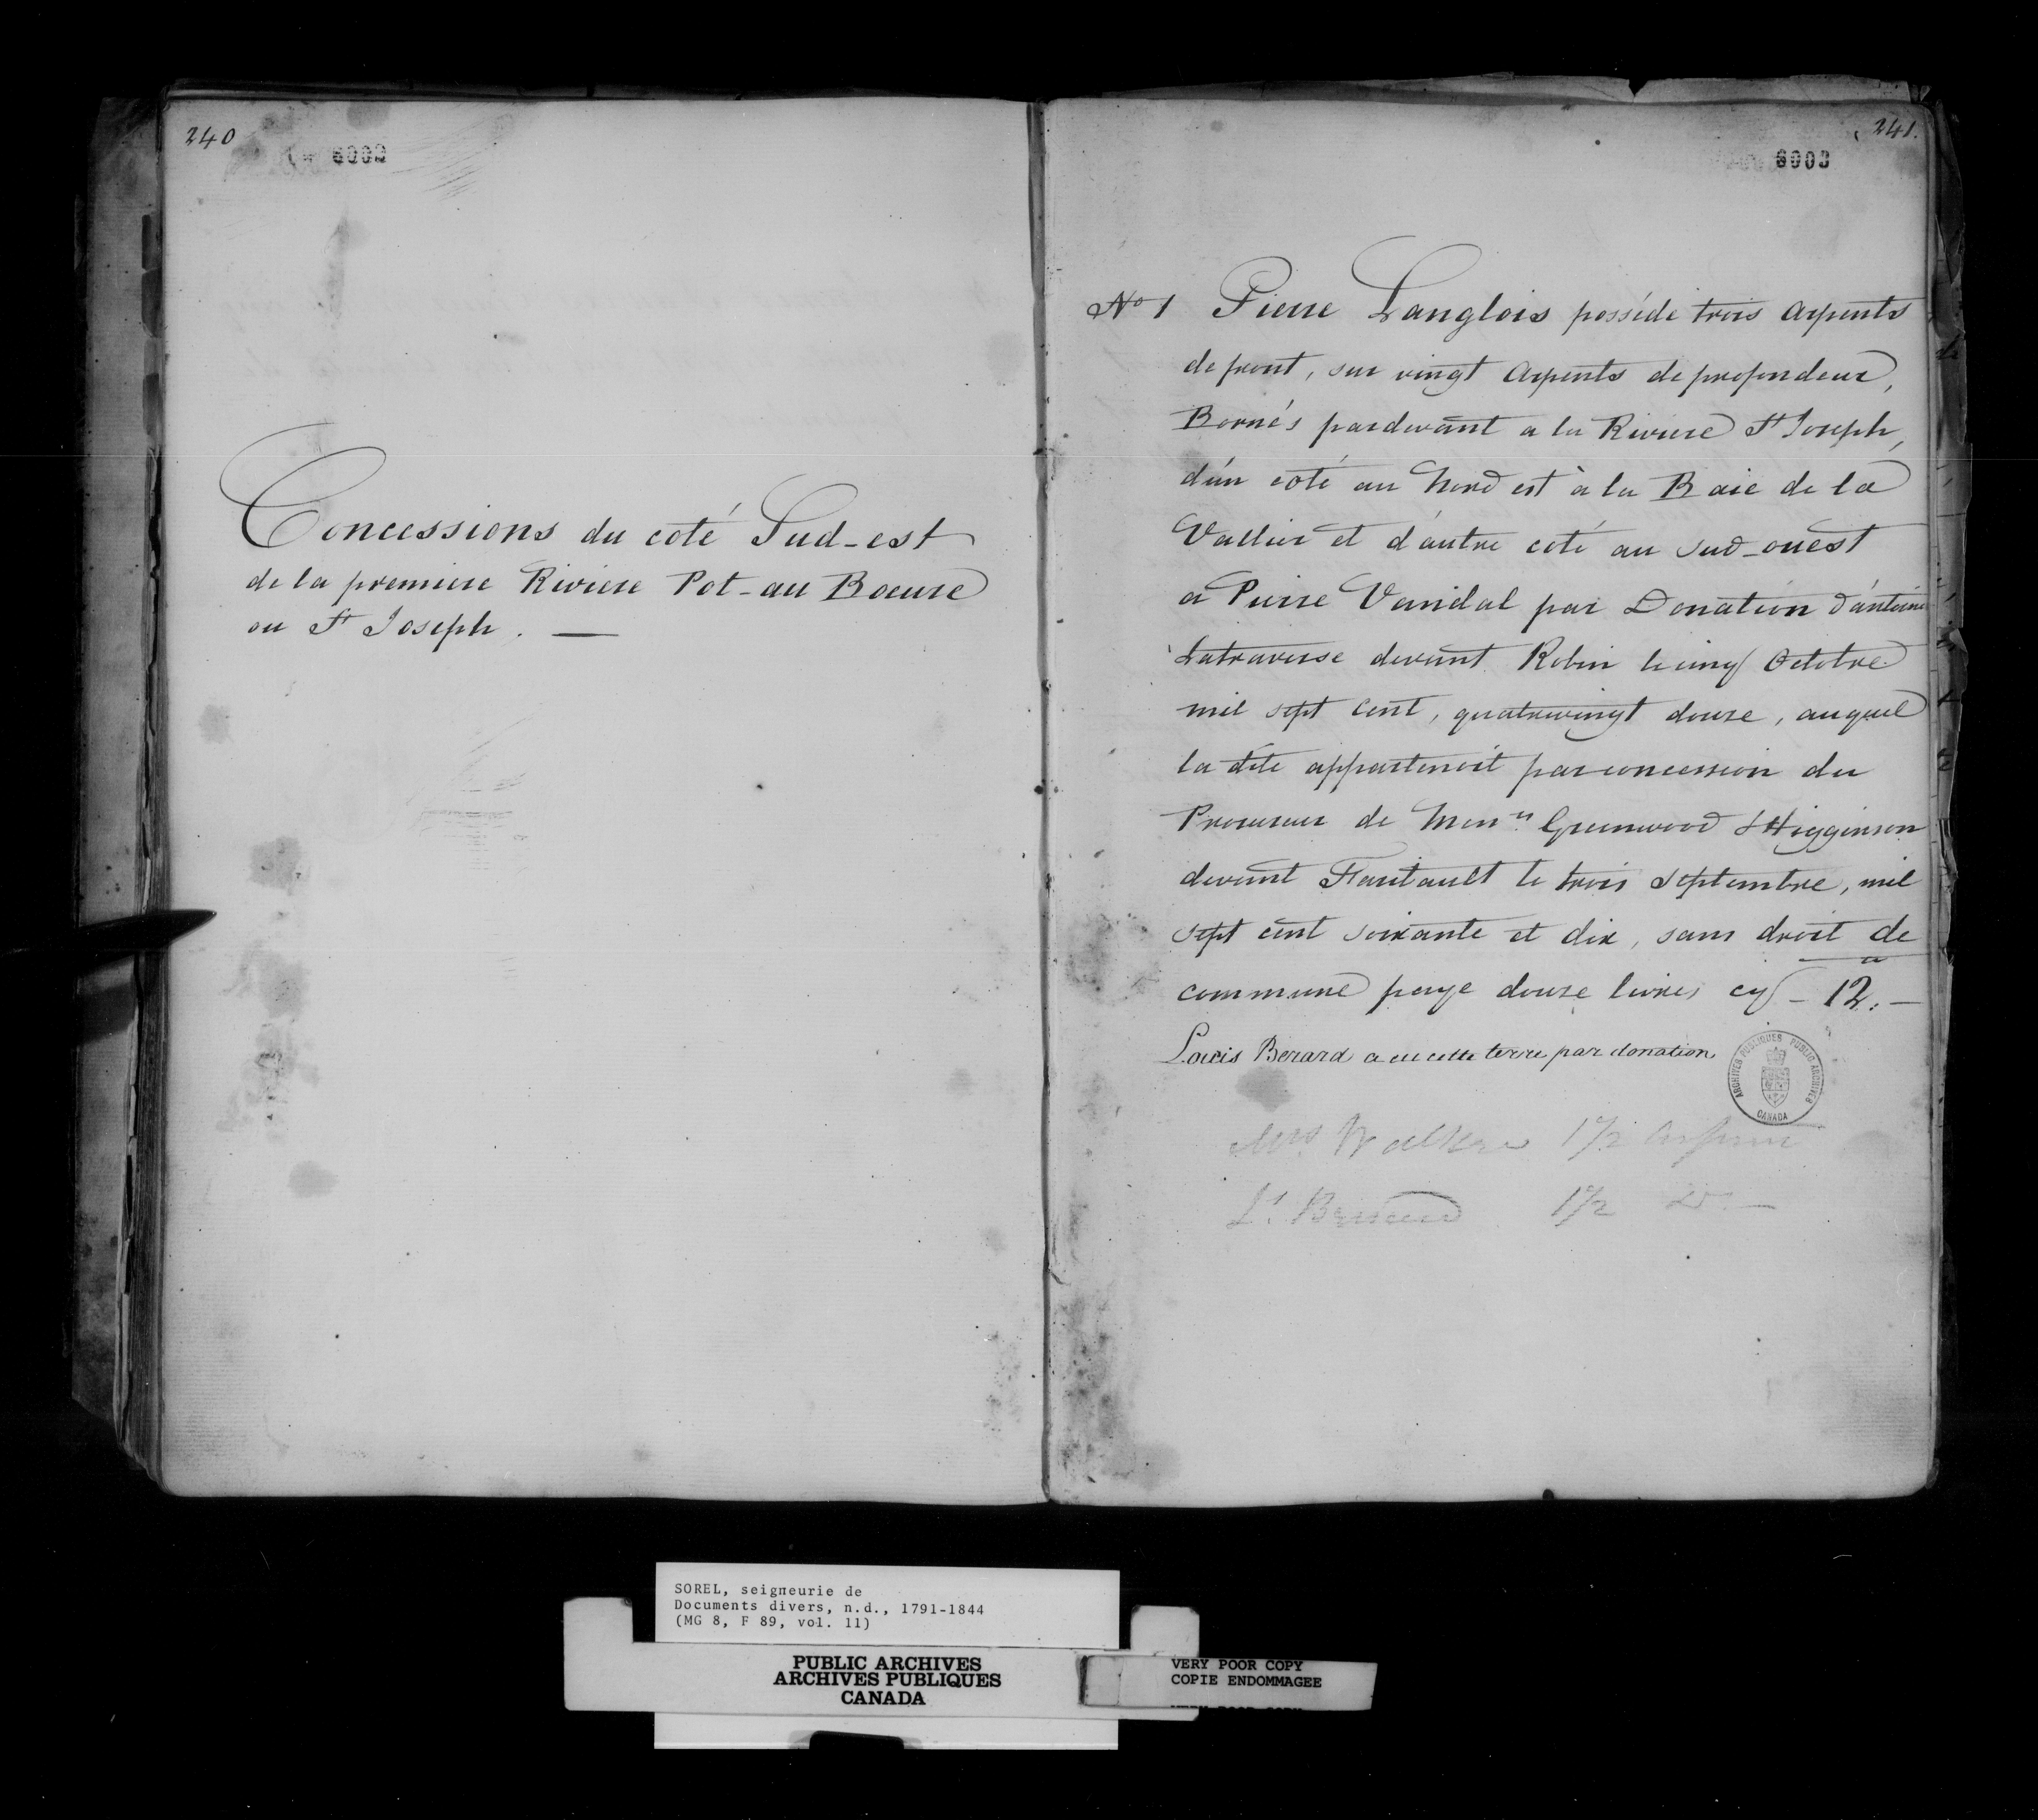 240
6002
Concessions du coté Sud-est
de la premiere Riviere Pot-au Boeure
ou St Joseph. —
241.
6003
No 1 Pierre Langlois posséde trois Arpents
de front, sur vingt Arpents de profondeur,
Bornés pardevant a la Riviere St Joseph,
d'un coté au Nord est à la Baie de la
Vallier et d'autre coté au sud-ouest
a Pierre Vandal par Donation d'antoine
Latraverse devant Robin le cinq Octobre
mil sept cent, quatrevingt douze, auquel
la dite appartenoit par concession du
Procureur de Messrs Greenwood & Higginson
devant Faribault le trois Septembre, mil
sept cent soixante et dix, sans droit de
commune paye douze livres cy — 12. —
Louis Berard a eu cette terre par donation
Mrs Walker 1 1/2 Arpent
Ls Berard 1 1/2 Do —
ARCHIVES PUBLIQUES PUBLIC ARCHIVES
CANADA
SOREL, seigneurie de
Documents divers, n.d., 1791-1844
(MG 8, F 89, vol. 11)
PUBLIC ARCHIVES
ARCHIVES PUBLIQUES
CANADA
VERY POOR COPY
COPIE ENDOMMAGEE